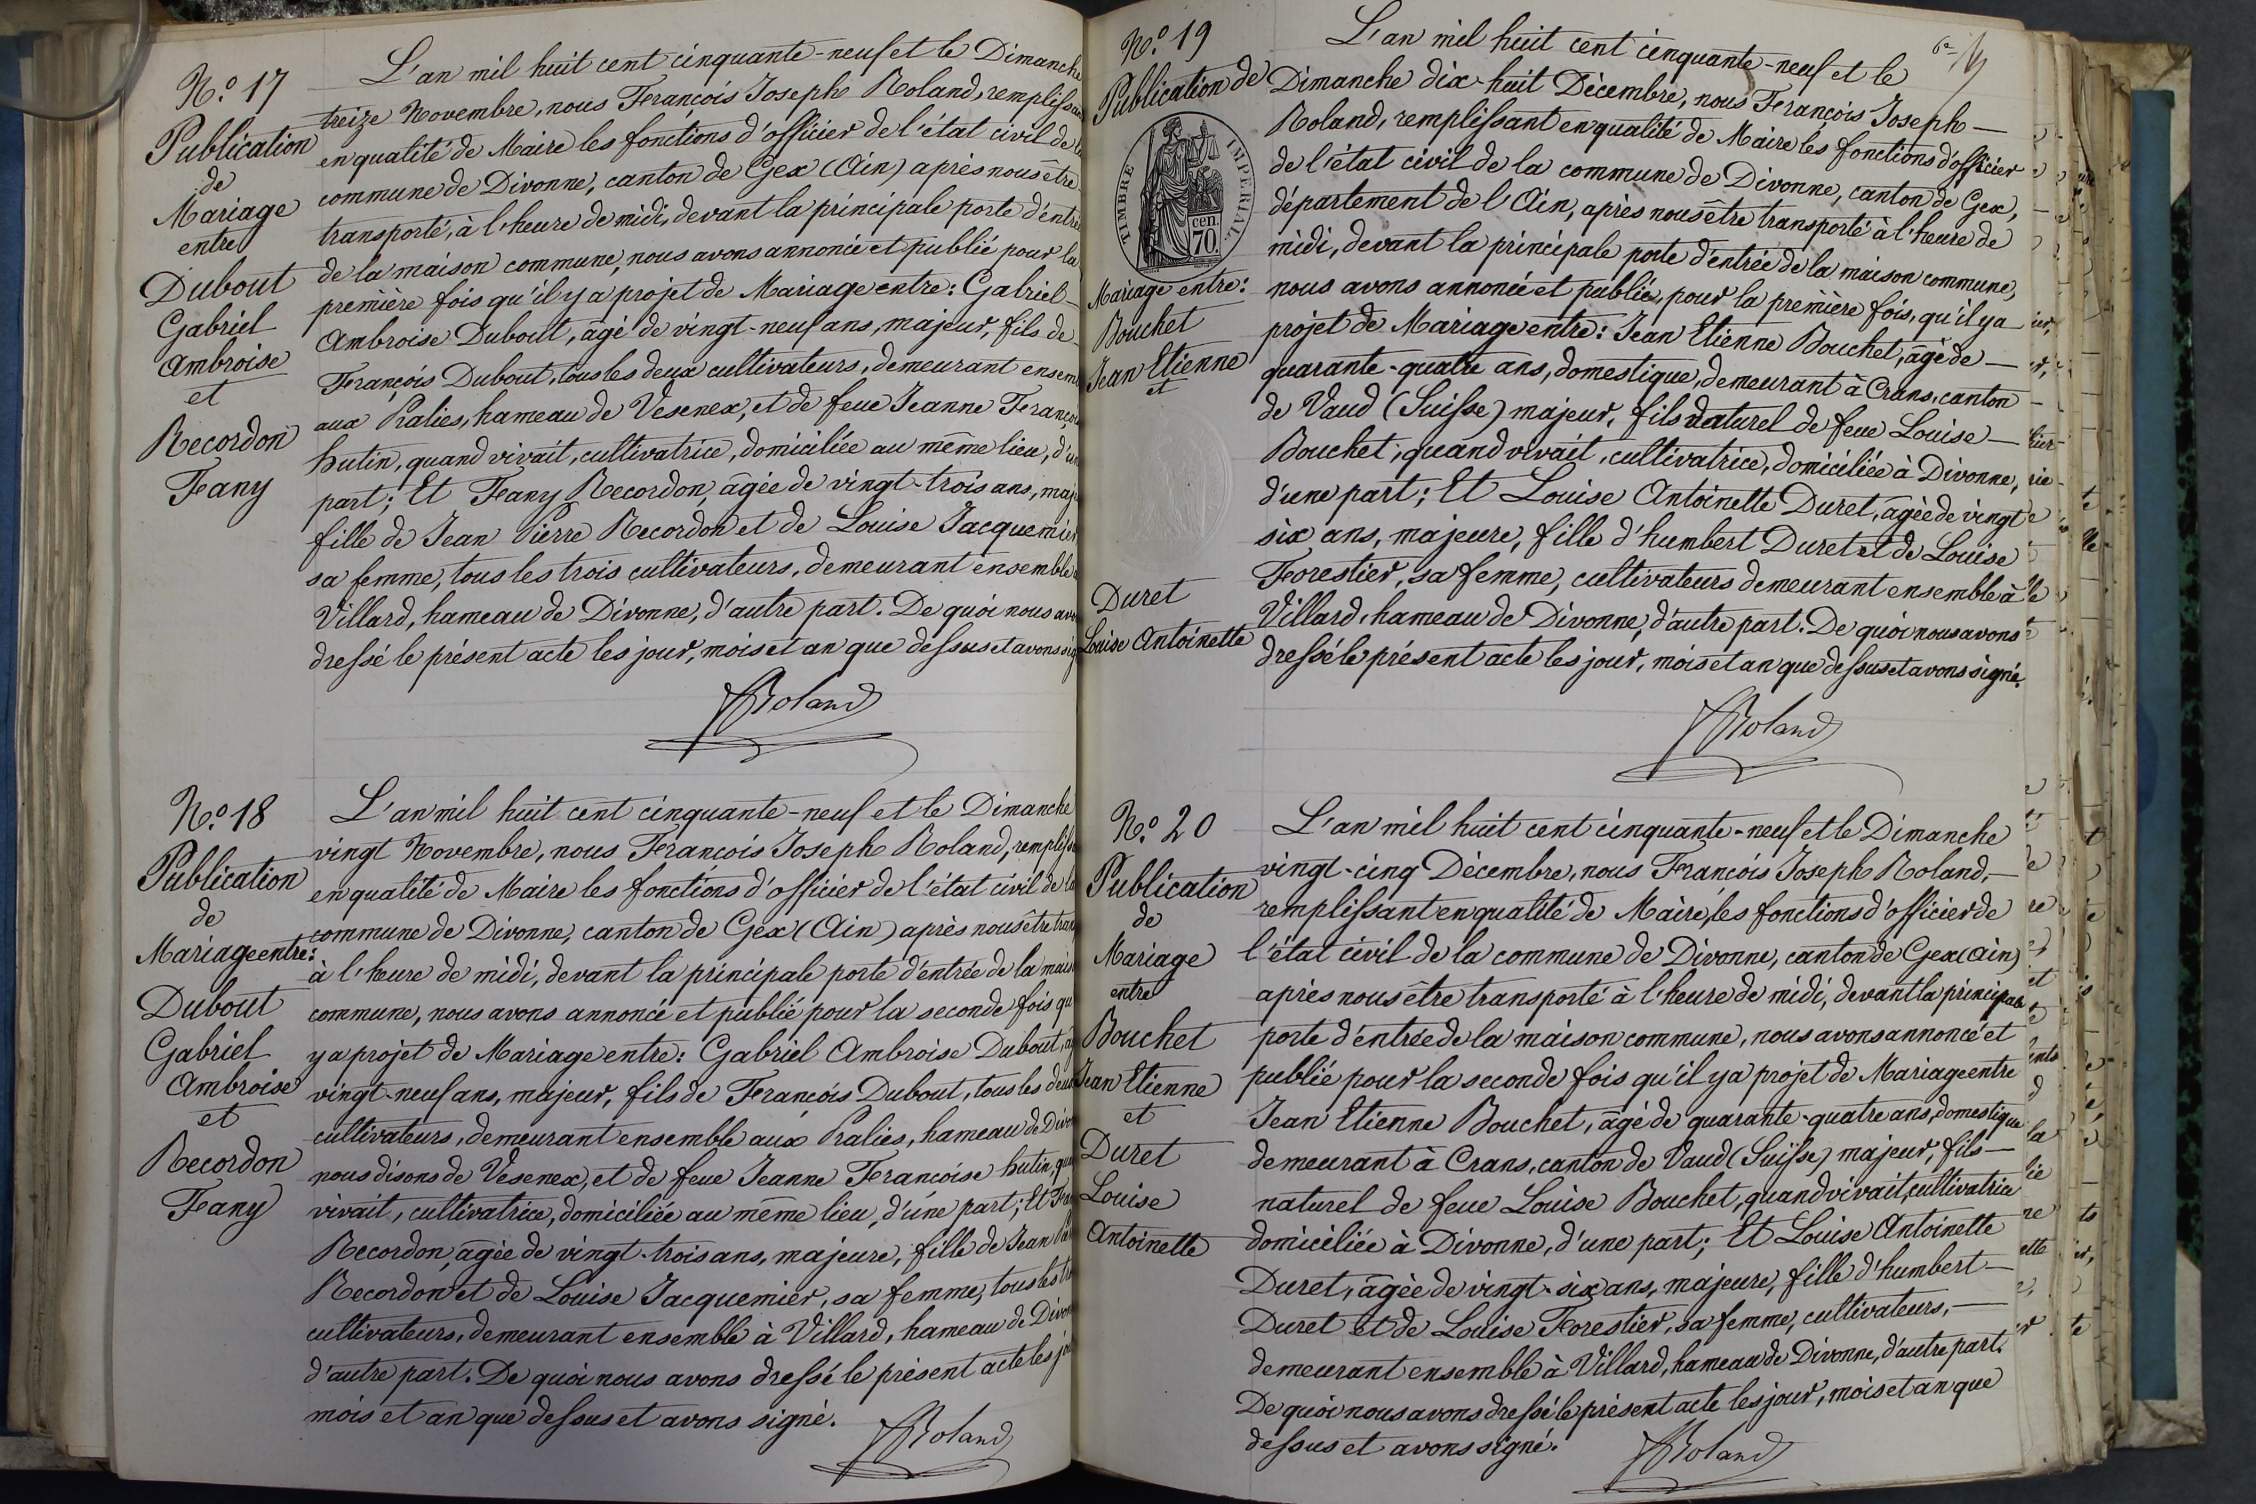 N.o 17
Publication
de
Mariage
entre
Dubout
Gabriel
Ambroise
et
Recordon
Fany
L'an mil huit cent cinquante-neuf et le Dimanche
treize Novembre, nous François Joseph Roland, remplissant
en qualité de Maire les fonctions d'officier de l'état civil de la
commune de Divonne, canton de Gex (Ain) après nous être
transporté, à l'heure de midi, devant la principale porte d'entrée
de la maison commune, nous avons annoncé et publié pour la
première fois qu'il y a projet de Mariage entre: Gabriel
Ambroise Dubout, âgé de vingt-neuf ans, majeur, fils de
François Dubout, tous les deux cultivateurs, demeurant ensem
aux Pralies, hameau de Vesenex, et de feue Jeanne Franço
hutin, quand vivait, cultivatrice, domiciliée au même lieu, d'u
part; Et Fany Recordon, âgée de vingt-trois ans, maj
fille de Jean Pierre Recordon et de Louise Jacquemier
sa femme, tous les trois cultivateurs, demeurant ensemble
Villard, hameau de Divonne, d'autre part. De quoi nous avo
dressé le présent acte les jour, mois et an que dessus et avons sig
Roland
N.o 18
Publication
de
Mariage entre:
Dubout
Gabriel
Ambroise
et
Recordon
Fany
L'an mil huit cent cinquante-neuf et le Dimanche
vingt Novembre, nous François Joseph Roland, rempliss
en qualité de Maire les fonctions d'officier de l'état civil de la
commune de Divonne, canton de Gex (Ain) après nous être tran
à l'heure de midi, devant la principale porte d'entrée de la mais
commune, nous avons annoncé et publié pour la seconde fois qu
y a projet de Mariage entre: Gabriel Ambroise Dubout, a
vingt-neuf ans, majeur, fils de François Dubout, tous les deux
cultivateurs, demeurant ensemble aux Pralies, hameau de Divo
nous disons de Vesenex, et de feue Jeanne Françoise hutin, qua
vivait, cultivatrice, domiciliée au même lieu, d'une part; Et Fa
Recordon, âgée de vingt-trois ans, majeure, fille de Jean Pie
Recordon et de Louise Jacquemier, sa femme, tous les tr
cultivateurs, demeurant ensemble à Villard, hameau de Divon
d'autre part. De quoi nous avons dressé le présent acte les jo
mois et an que dessus et avons signé.
Roland
N.o 19
Publication de
TIMBRE IMPERIAL
cen.
70.
Mariage entre:
Bouchet
Jean Etienne
et
Duret
Louise Antoinette
L'an mil huit cent cinquante-neuf et le
Dimanche dix-huit Décembre, nous François Joseph
Roland, remplissant en qualité de Maire les fonctions d'officier
de l'état civil de la commune de Divonne, canton de Gex,
département de l'Ain, après nous être transporté à l'heure de
midi, devant la principale porte d'entrée de la maison commune,
nous avons annoncé et publié, pour la première fois, qu'il y a
projet de Mariage entre: Jean Etienne Bouchet, âgé de
quarante-quatre ans, domestique, demeurant à Crans, canton
de Vaud (Suisse) majeur, fils naturel de feue Louise
Bouchet, quand vivait, cultivatrice, domiciliée à Divonne,
d'une part; Et Louise Antoinette Duret, âgée de vingt
six ans, majeure, fille d'humbert Duret et de Louise
Forestier, sa femme, cultivateurs demeurant ensemble à
Villard, hameau de Divonne, d'autre part. De quoi nous avons
dressé le présent acte les jour, mois et an que dessus et avons signé.
Roland
N.o 20
Publication
de
Mariage
entre
Bouchet
Jean Etienne
et
Duret
Louise
Antoinette
L'an mil huit cent cinquante-neuf et le Dimanche
vingt-cinq Décembre, nous François Joseph Roland,
remplissant en qualité de Maire, les fonctions d'officier de
l'état civil de la commune de Divonne, canton de Gex (Ain)
après nous être transporté à l'heure de midi, devant la principale
porte d'entrée de la maison commune, nous avons annoncé et
publié pour la seconde fois qu'il y a projet de Mariage entre
Jean Etienne Bouchet, âgé de quarante-quatre ans, domestique
demeurant à Crans, canton de Vaud (Suisse) majeur, fils
naturel de feue Louise Bouchet, quand vivait, cultivatrice
domiciliée à Divonne, d'une part; Et Louise Antoinette
Duret, âgée de vingt-six ans, majeure, fille d'humbert
Duret et de Louise Forestier, sa femme, cultivateurs,
demeurant ensemble à Villard, hameau de Divonne, d'autre part.
De quoi nous avons dressé le présent acte les jour, mois et an que
dessus et avons signé.
Roland